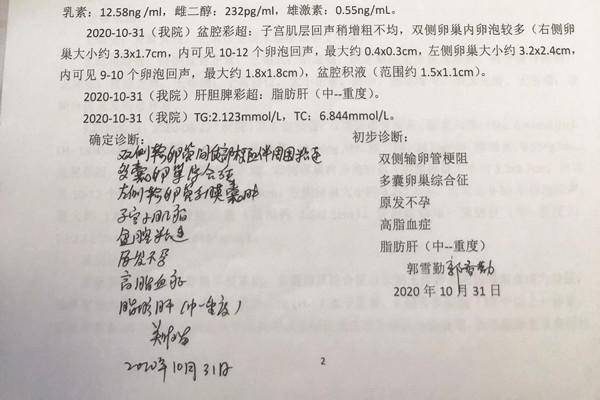 乳素：12.58ng /ml，雌二醇：232pg/ml，雄激素：0.55ng/mL。
2020-10-31（我院）盆腔彩超：子宫肌层回声稍增粗不均，双侧卵巢内卵泡较多（右侧卵
巢大小约 3.3x1.7cm，内可见 10-12 个卵泡回声，最大约 0.4x0.3cm，左侧卵巢大小约 3.2x2.4cm，
内可见 9-10 个卵泡回声，最大约 1.8x1.8cm），盆腔积液（范围约 1.5x1.1cm）。
2020-10-31（我院）肝胆脾彩超：脂肪肝（中--重度）。
2020-10-31（我院）TG:2.123mmol/L，TC： 6.844mmol/L。
确定诊断：
双侧输卵管间质部梗阻伴周围粘连
多囊卵巢综合征
左侧输卵管系膜囊肿
子宫小肌瘤
盆腔粘连
原发不孕
高脂血症
脂肪肝（中--重度）
2020年10月31日
初步诊断：
双侧输卵管梗阻
多囊卵巢综合征
原发不孕
高脂血症
脂肪肝（中--重度）
郭雪勤 郭雪勤
2020 年 10 月 31 日
2